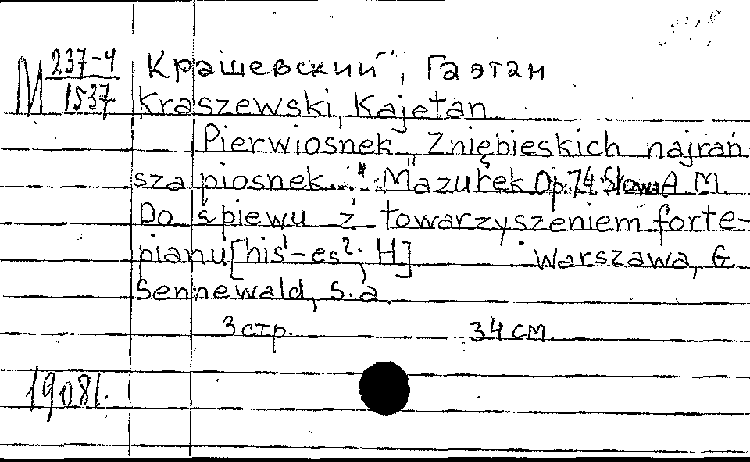 М 237-4 / 1537
Крашевский, Гаэтан
Kraszewski, Kajetan
Pierwiosnek „Zniębieskich najrań
sza piosnek..." Mazurek Op. 74 Słowa A. M.
Do śpiewu z towarzyszeniem forte-
pianu [his¹-es²; H] Warszawa, G.
Sennewald, s. a.
3 стр. 34 см.
19081.